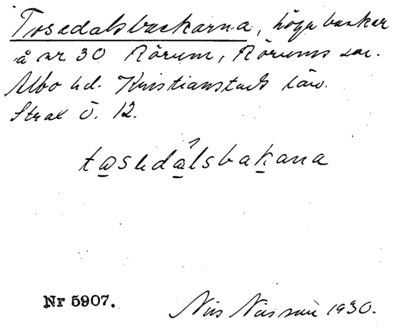 Tosedalsbackarna, höga backar
å nr. 30 Rörum, Rörums sn.
Albo hd. Kristianstads län.
Strax ö. 12.
tasedálsbakana
Nr 5907.
Nils 1930.